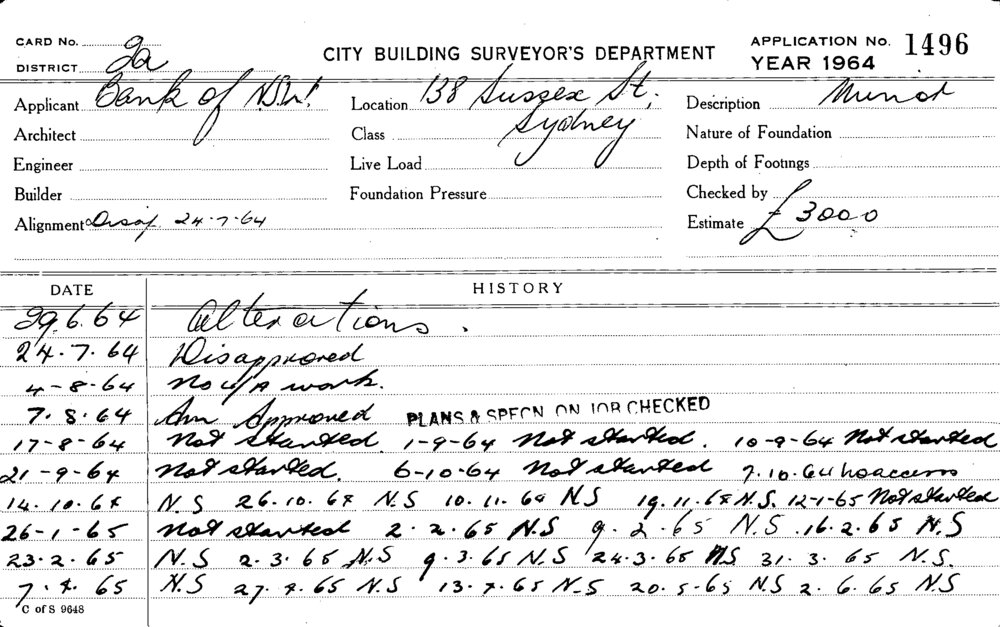 CARD No. 2a CITY BUILDING SURVEYOR'S DEPARTMENT APPLICATION No. 1496
DISTRICT YEAR 1964
Applicant Bank of N.S.W. Location 138 Sussex St, Description Minor
Architect Class Sydney Nature of Foundation
Engineer Live Load Depth of Footings
Builder Foundation Pressure Checked by
Alignment Disap. 24-7-64 Estimate £3000
DATE HISTORY
29.6.64 Alterations.
24.7.64 Disapproved
4-8-64 No u/a work.
7.8.64 Am Approved PLANS & SPECN ON JOB CHECKED
17-8-64 Not started. 1-9-64 Not started. 10-9-64 Not started
21-9-64 Not started. 6-10-64 Not started 7.10.64 no access
14.10.64 N.S 26.10.64 N.S 10.11.64 N.S 19.11.64 N.S. 12-1-65 Not started
26-1-65 Not started 2.2.65 N.S 9.2.65 N.S. 16.2.65 N.S
23.2.65 N.S 2.3.65 N.S 9.3.65 N.S 24.3.65 N.S 31.3.65 N.S.
7.4.65 N.S 27.4.65 N.S 13.4.65 N.S 20.5.65 N.S 2.6.65 N.S
C of S 9648